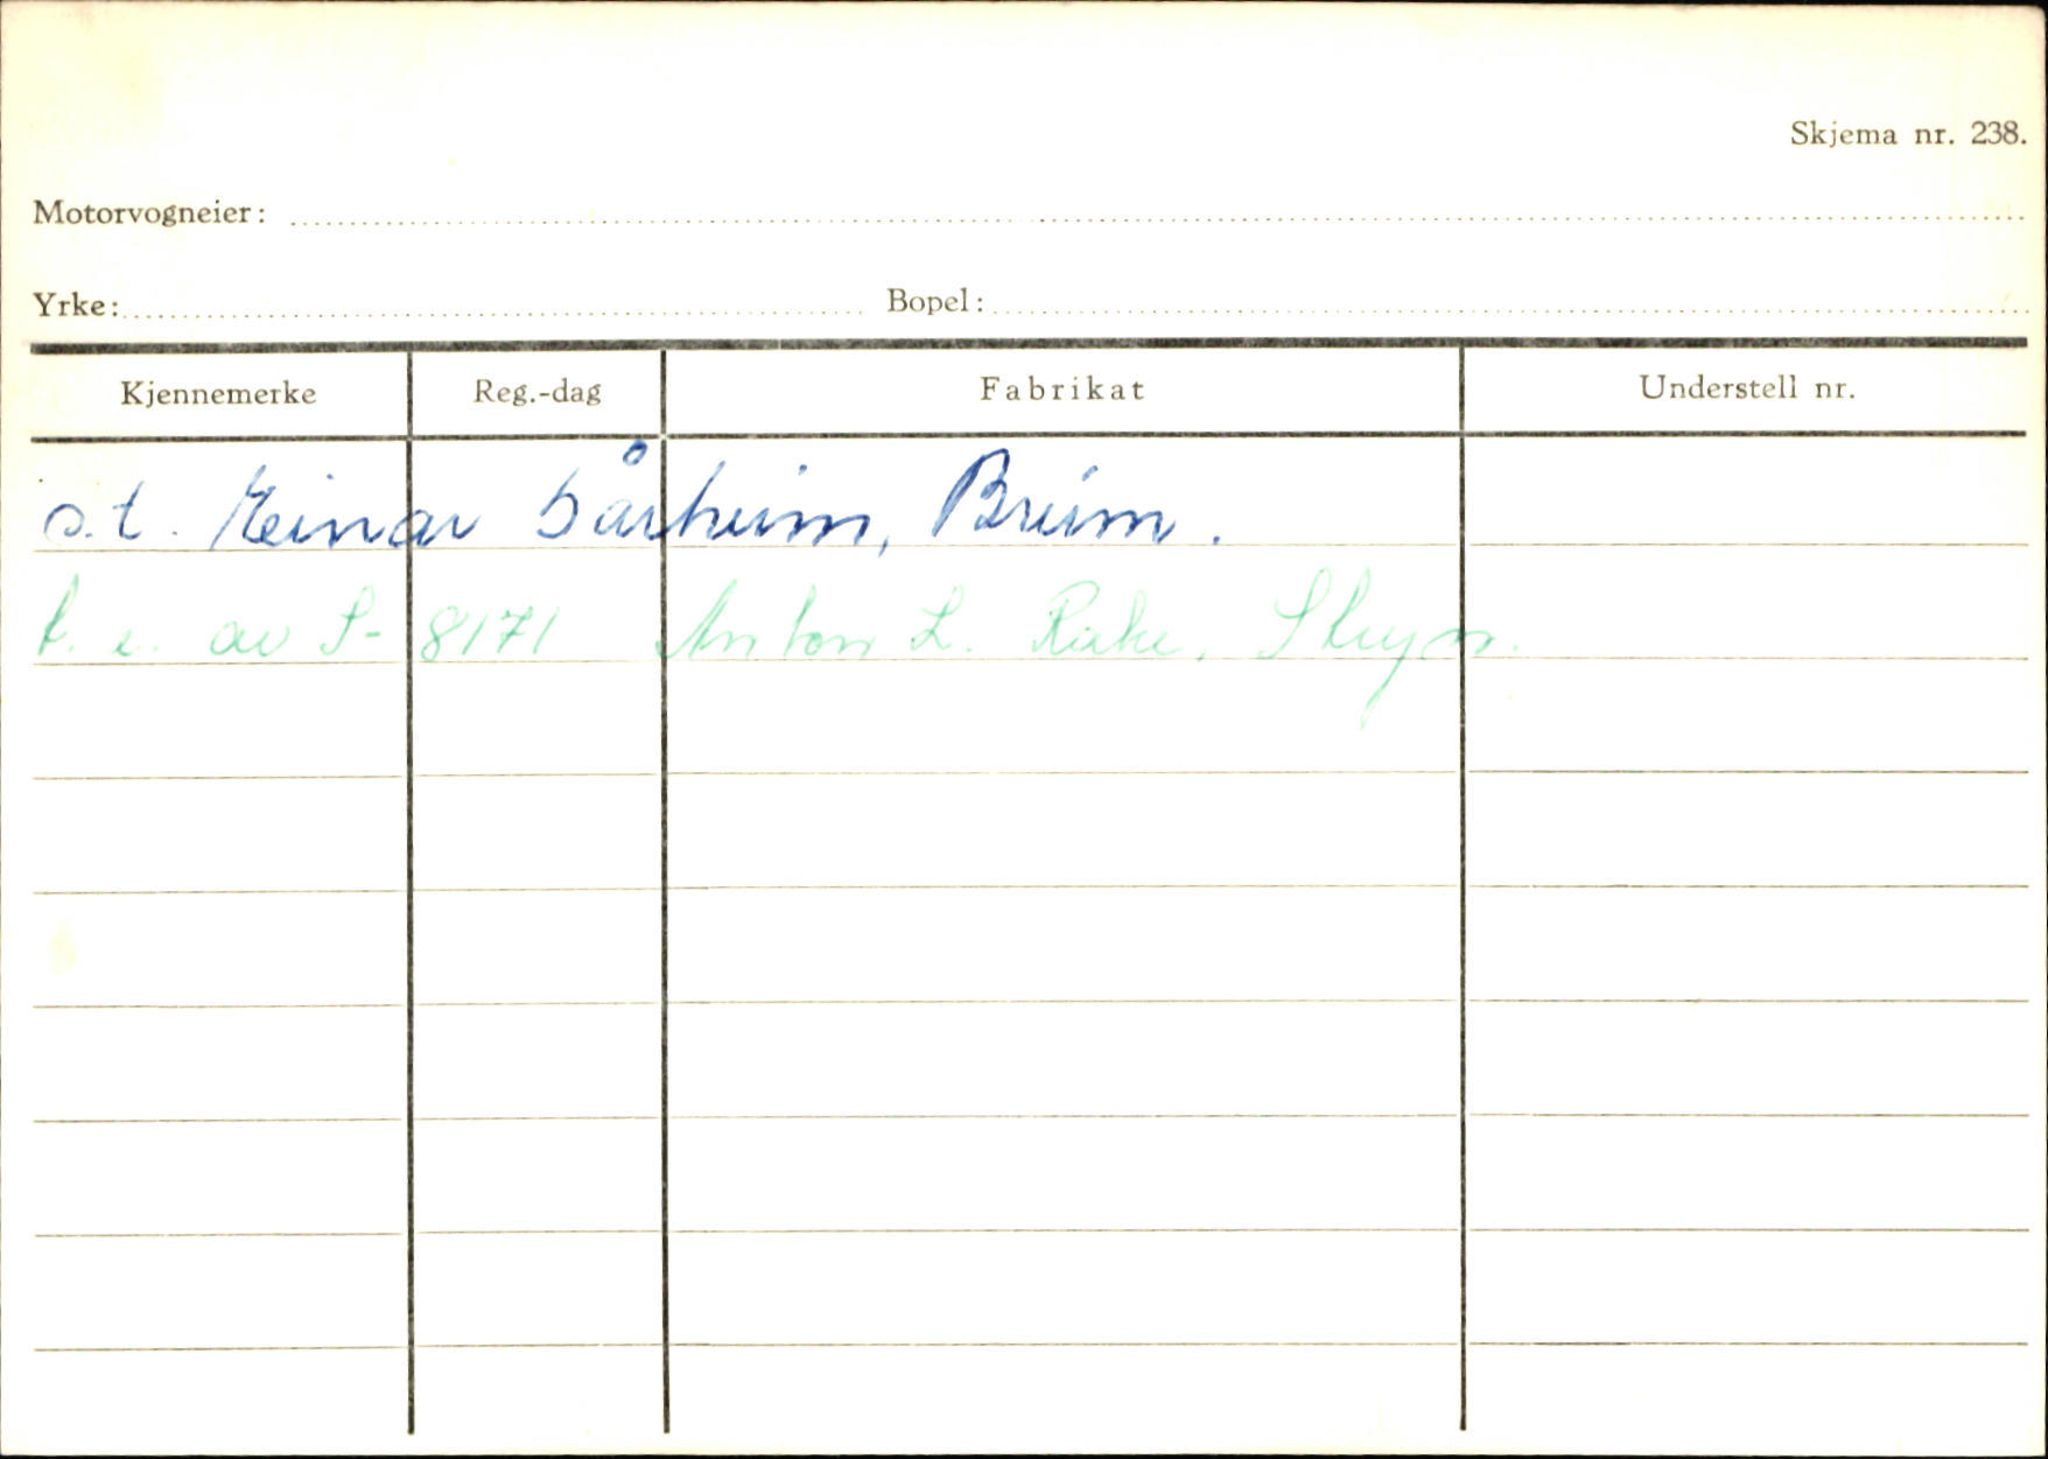 Skjema nr. 238.
Motorvogneier:
Yrke: Bopel:
Kjennemerke Reg.-dag Fabrikat Understell nr.
s.t. Einar Sårheim, Breim.
t. e. av S- 8171 Anton L. Rake, Stryn.